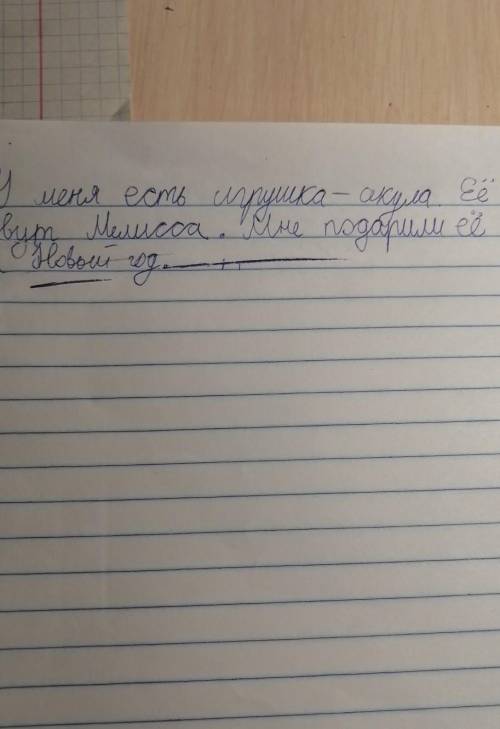 У меня есть игрушка - акула. Её
вут Мелисса. Мне подарили её
Новый год.